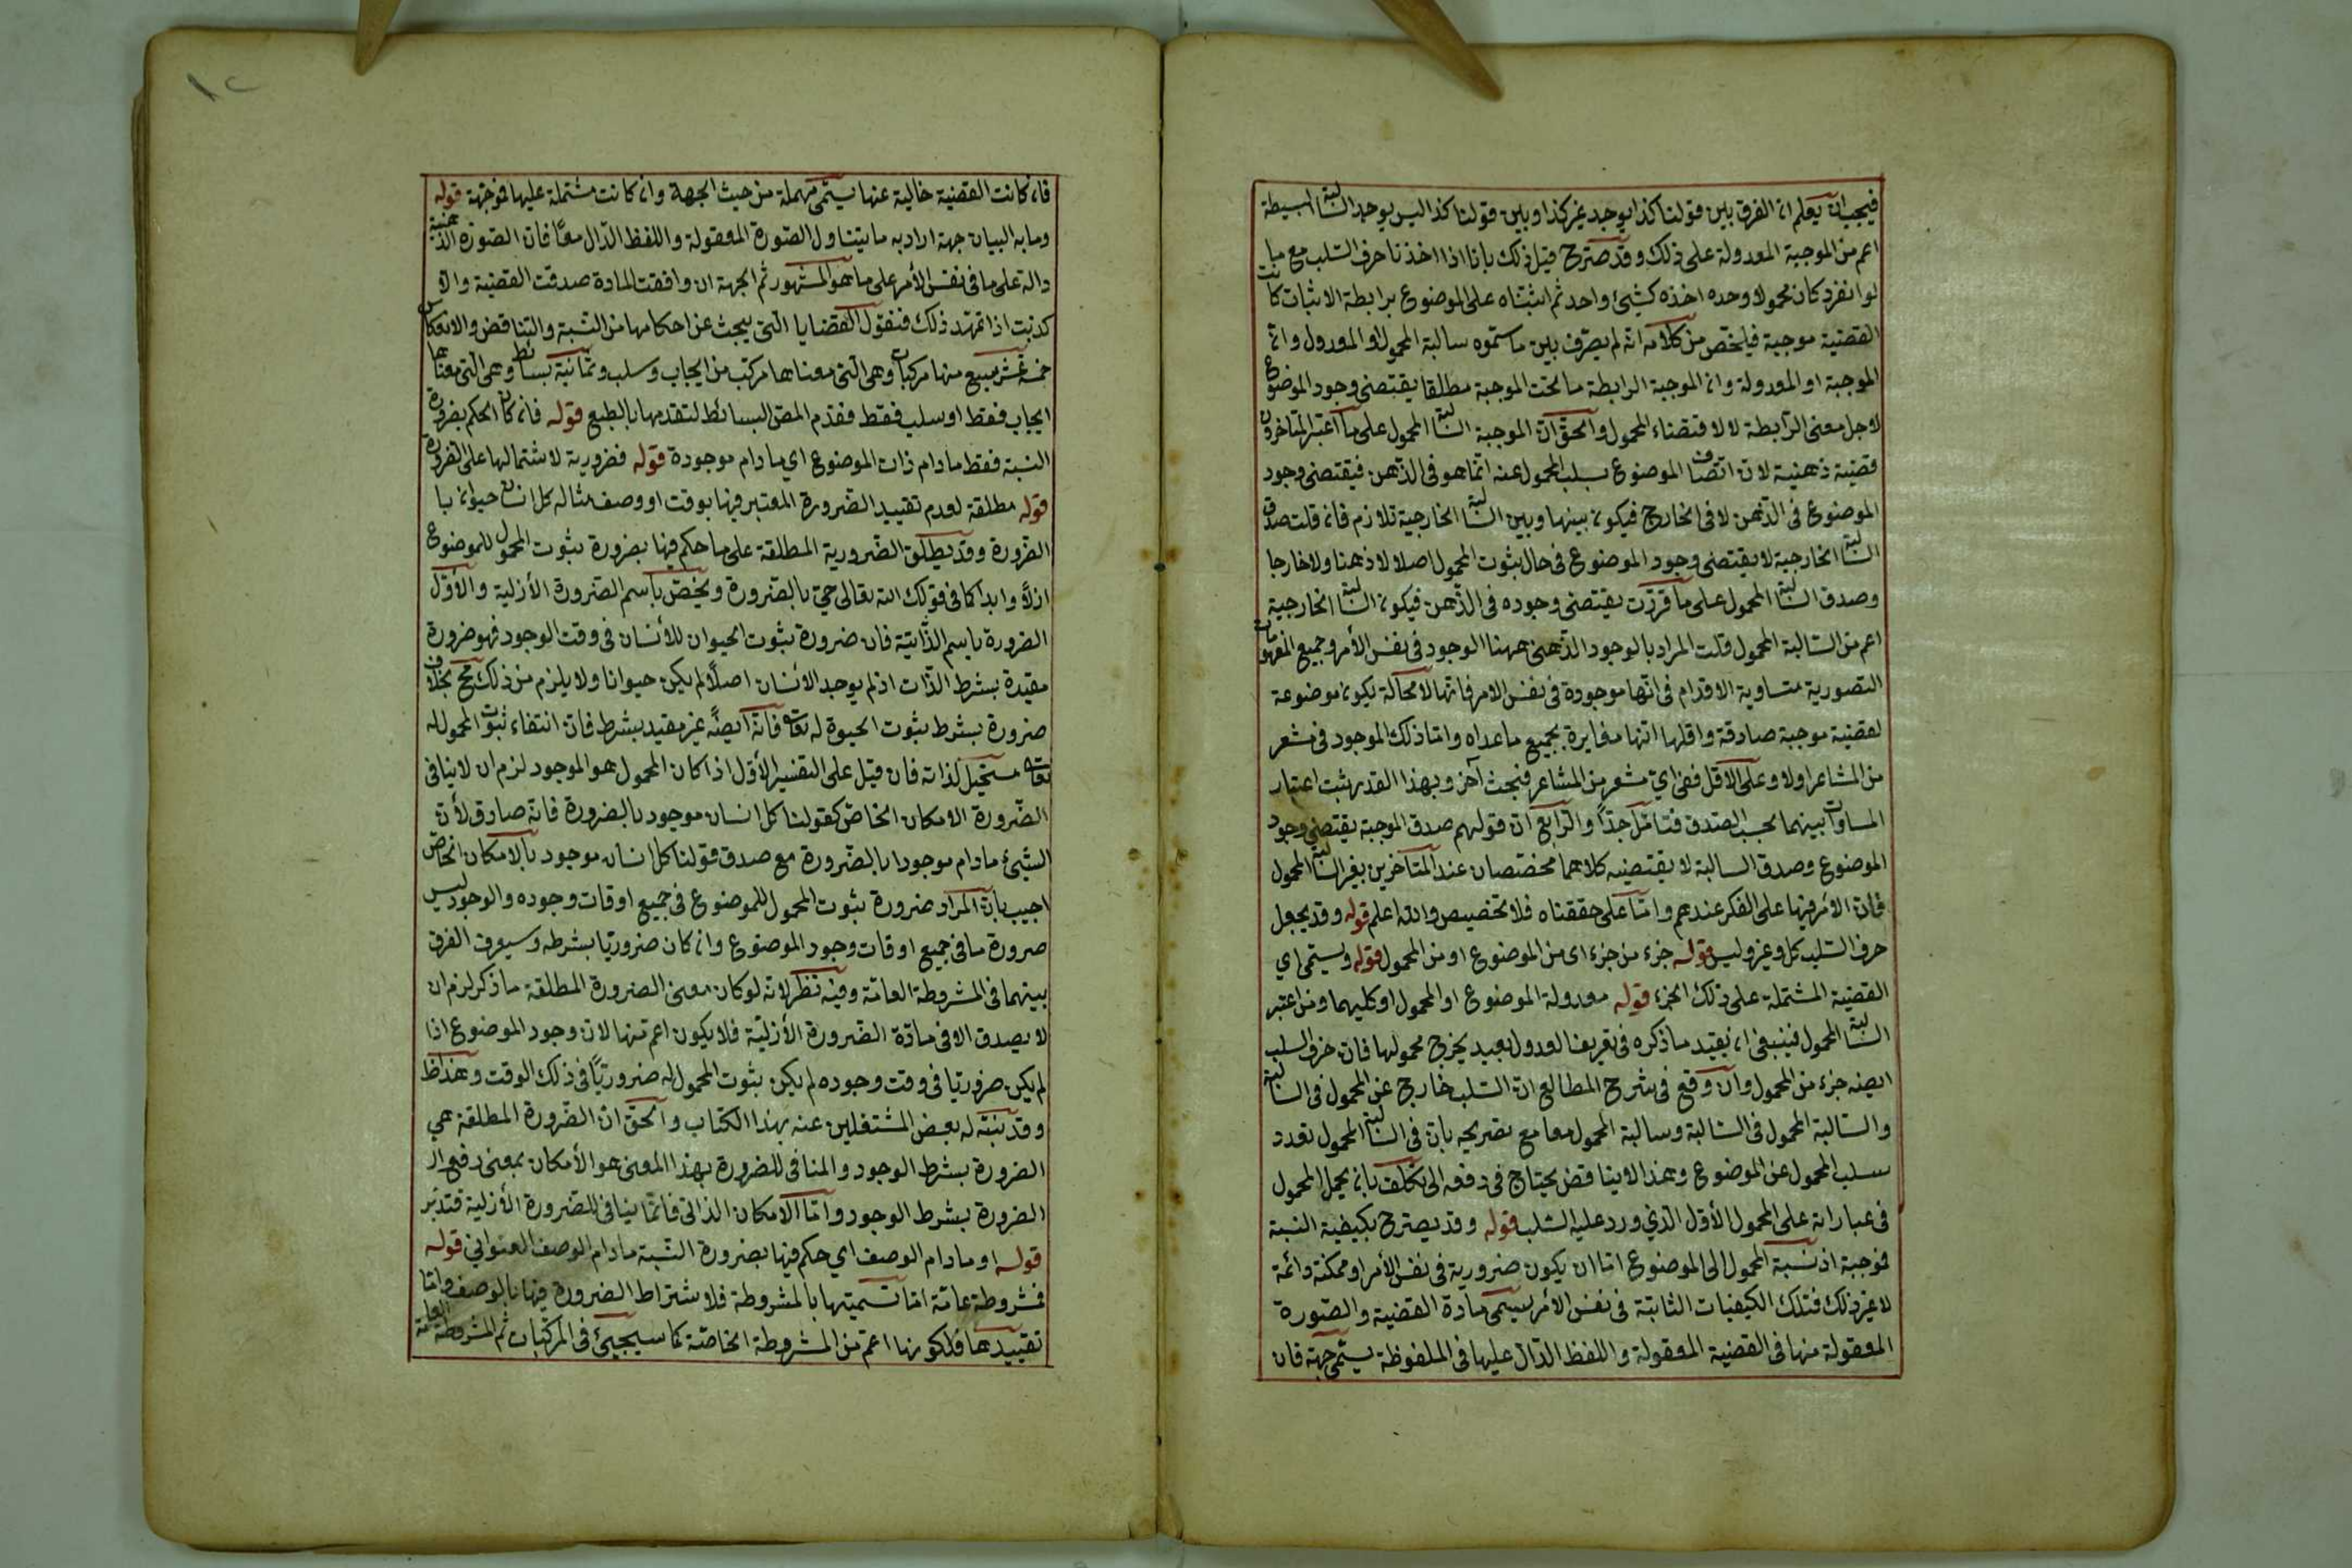 فيجب ان يعلم ان الفرق بين قولنا كذا يوجد غير كذا وبين قولنا كذا ليس يوجد السالبة البسيطة
اعم من الموجبة المعدولة على ذلك وقد صترح قبل ذلك بانا اذا اخذنا حرف السلب مع ما
لو انفرد كان محمولا وحده اخذه كشئ واحد ثم اثبتناه على الموضوع برابطة الاثبات كانت
القضية موجبة فيلخص من كلامه انه لم يفرق بين ما ستموه سالبة المحمول والمعدول وان
الموجبة او المعدولة وان الموجبة الرابطة ما تحت الموجبة مطلقا يقتضى وجود الموضوع
لاجل معنى الرابطة لا لاقتضاء المحمول والحق ان الموجبة السالبة المحمول على ما اعتبر المتاخرون
قضية ذهنية لان اتصاف الموضوع بسلب المحمول عنه انما هو فى الذهن فيقتضى وجود
الموضوع فى الذهن لا فى الخارج فيكون بينها وبين السالبة الخارجية تلازم فان قلت صدق
السالبة الخارجية لا يقتضى وجود الموضوع فى حال ثبوت المحمول اصلا لا ذهنا ولا خارجا
وصدق السالبة المحمول على ما قررت يقتضى وجوده فى الذهن فيكون السالبة الخارجية
اعم من السالبة المحمول قلت المراد بالوجود الذهنى ههنا الوجود فى نفس الأمر وجميع المفهومات
التصورية متساوية الاقدام فى انها موجودة فى نفس الامر فانها لا محالة يكون موضوعة
لقضية موجبة صادقة واقلها انها مغايرة بجميع ماعداه واما ذلك الموجود فى مشعر
من المشاعر اولا وعلى الاقل ففى اي مشعر من المشاعر فبحث آخر وبهذا القدر يثبت اعتبار
المساوات بينهما بحسب الصدق فتامل جدًّا والرابع ان قولهم صدق الموجبة يقتضى وجود
الموضوع وصدق السالبة لا يقتضيه كلاهما مختصان عند المتأخرين بغير السالبة المحمول
فان الامر فيها على الفكر عندهم واما على حققناه فلا تخصيص والله اعلم قوله وقد يجعل
حرف السلب كل وغير وليس قوله جزء من جزء اى من الموضوع او من المحمول قوله ويسمى اي
القضية المشتملة على ذلك الجزء قوله معدولة الموضوع او المحمول او كليهما ومن اعتبر
السالبة المحمول فينبغى ان يقيد ما ذكره فى تعريف العدول بقيد يخرج محمولها فان حرف السلب
ايضه جزء من المحمول وان وقع فى شرح المطالع ان السلب خارج عن المحمول فى السالبة
والسالبة المحمول فى السالبة وسالبة المحمول معا مع تصريحه بان فى السالبة المحمول تعدد
سلب المحمول عن الموضوع وهذا لا يناقض يحتاج فى دفعه الى تكلف بان يحمل المحمول
فى عباراته على المحمول الأول الذي ورد عليه السلب قوله وقد يصترح بكيفية النسبة
فموجبة اذ نسبة المحمول الى الموضوع اما ان يكون ضرورية فى نفس الأمر او ممكنة دائمة
لا غير ذلك فتلك الكيفيات الثابتة فى نفس الأمر يسمى مادة القضية والصورة
المعقولة منها فى القضية المعقولة واللفظ الدال عليها فى الملفوظة يسمى جهة فان
١٢
فان كانت القضية خالية عنها يسمى مهملة من حيث الجهة وان كانت مشتملة عليها فموجهة قوله
ومابه البيان جهة اراد به ما يتناول الصورة المعقولة واللفظ الدال معًا فان الصورة الذهنية
دالة على ما فى نفس الأمر على ما هو المشهور ثم الجهة ان وافقت المادة صدقت القضية والا
كذبت اذا تمهد ذلك فنقول القضايا التى يبحث عن احكامها من النسبة والتناقض والانعكاس
خمسة عشر سبع منها مركبات وهى التى معناها مركب من ايجاب وسلب وثمانية بسائط وهى التى معناها
ايجاب فقط او سلب فقط فقدم المص البسائط لتقدمها بالطبع قوله فان كان الحكم بضرورة
النسبة فقط مادام ذات الموضوع اي مادام موجودة قوله فضرورية لاشتمالها على الضرورة
قوله مطلقة لعدم تقييد الضرورة المعتبر فيها بوقت او وصف مثاله كل انسان حيوان با
الضرورة وقد يطلق الضرورية المطلقة على ما حكم فيها بضرورة ثبوت المحمول للموضوع
ازلاً وابدا كما فى قولك الله تعالى حيّ بالضرورة ويختص باسم الضرورة الأزلية والأول
الضرورة باسم الذاتية فان ضرورة ثبوت الحيوان للأنسان فى وقت الوجود فهو ضرورة
مقيدة بشرط الذات اذ لم يوجد الانسان اصلًا لم يكن حيوانا ولا يلزم من ذلك مح بخلاف
ضرورة بشرط ثبوت الحيوة له تعالى فانه ايضًه غير مقيد بشرط فان انتفاء ثبوت المحمول له
تعالى مستحيل لذاته فان قيل على التفسير الأول اذا كان المحمول هو الموجود لزم ان لاينافى
الضرورة الامكان الخاص كقولنا كل انسان موجود بالضرورة فانه صادق لأن
الشئ مادام موجودا بالضرورة مع صدق قولنا كل انسان موجود بالامكان الخاص
اجيب بان المراد ضرورة ثبوت المحمول للموضوع فى جميع اوقات وجوده والوجود ليس
ضرورة ما فى جميع اوقات وجود الموضوع وان كان ضروريا بشرطه وسيعرف الفرق
بينهما فى المشروطة العامة وفيه نظر لانه لو كان معنى الضرورة المطلقة ما ذكر لزم ان
لا يصدق الا فى مادة الضرورة الأزلية فلا يكون اعم منها لان وجود الموضوع اذا
لم يكن ضروريا فى وقت وجوده لم يكن ثبوت المحمول له ضروريًّا فى ذلك الوقت وهذا ظ
وقد نبته له بعض المشتغلين عنه بهذا الكتاب والحق ان الضرورة المطلقة هي
الضرورة بشرط الوجود والمنافى للضرورة بهذا المعنى هو الأمكان بمعنى رفع ال
الضرورة بشرط الوجود واما الامكان الذاتى فانما ينافى للضرورة الأزلية فتدبر
قوله او مادام الوصف اي حكم فيها بضرورة النسبة مادام الوصف العنوانى قوله
فمشروطة عامة اما تسميتها بالمشروطة فلاشتراط الضرورة فيها بالوصف واما
تقييدها فلكونها اعم من المشروطة الخاصة كما سيجيئ فى المركبات ثم المشروطة العامة